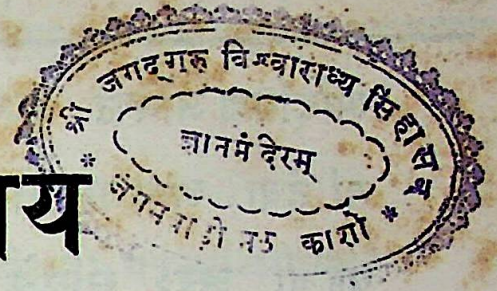 श्री जगद्गुरु विश्वाराध्य सिंहासन
ज्ञानमंदिरम्
* जंगमवाड़ी मठ काशी *
य